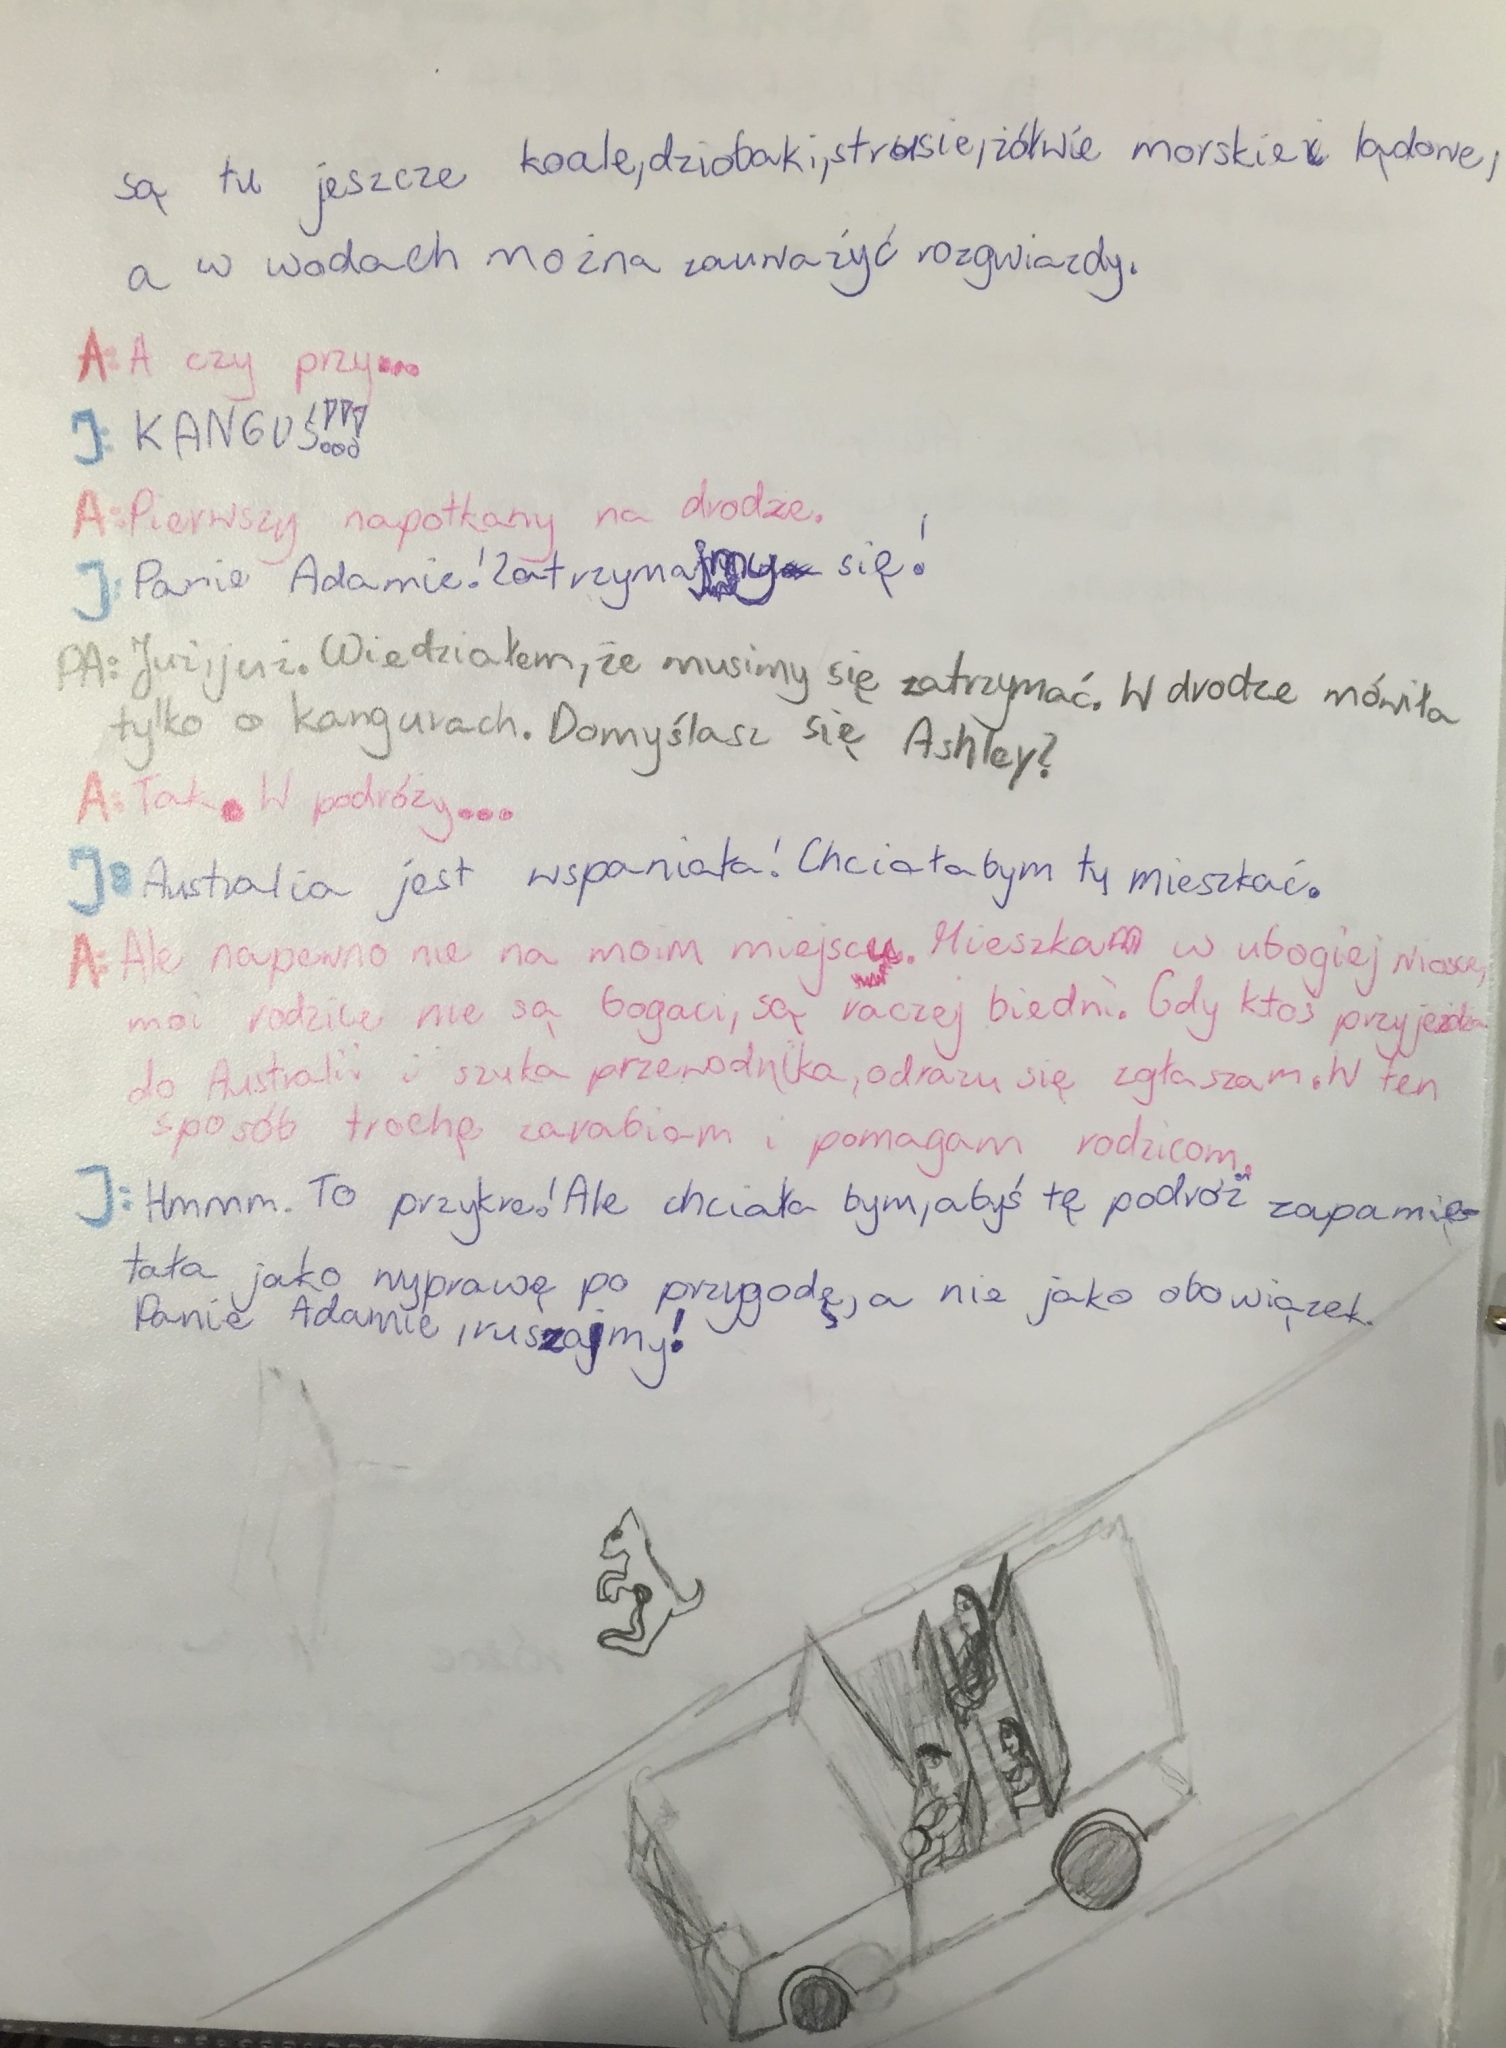 są tu jeszcze koale, dziobaki, strusie, żółwie morskie i lądowe,
a w wodach można zauważyć rozgwiazdy.
A: A czy przy...
J: KANGUŚ!!!
A: Pierwszy napotkany na drodze.
J: Panie Adamie! Zatrzymajmy się!
PA: Już, już. Wiedziałem, że musimy się zatrzymać. W drodze mówiła
tylko o kangurach. Domyślasz się Ashley?
A: Tak. W podróży...
J: Australia jest wspaniała! Chciałabym tu mieszkać.
A: Ale napewno nie na moim miejscu. Mieszkam w ubogiej wiosce,
moi rodzice nie są bogaci, są raczej biedni. Gdy ktoś przyjeżdża
do Australii i szuka przewodnika, odrazu się zgłaszam. W ten
sposób trochę zarabiam i pomagam rodzicom.
J: Hmmm. To przykre! Ale chciała bym, abyś tę podróż zapamię-
tała jako wyprawę po przygodę, a nie jako obowiązek.
Panie Adamie, ruszajmy!